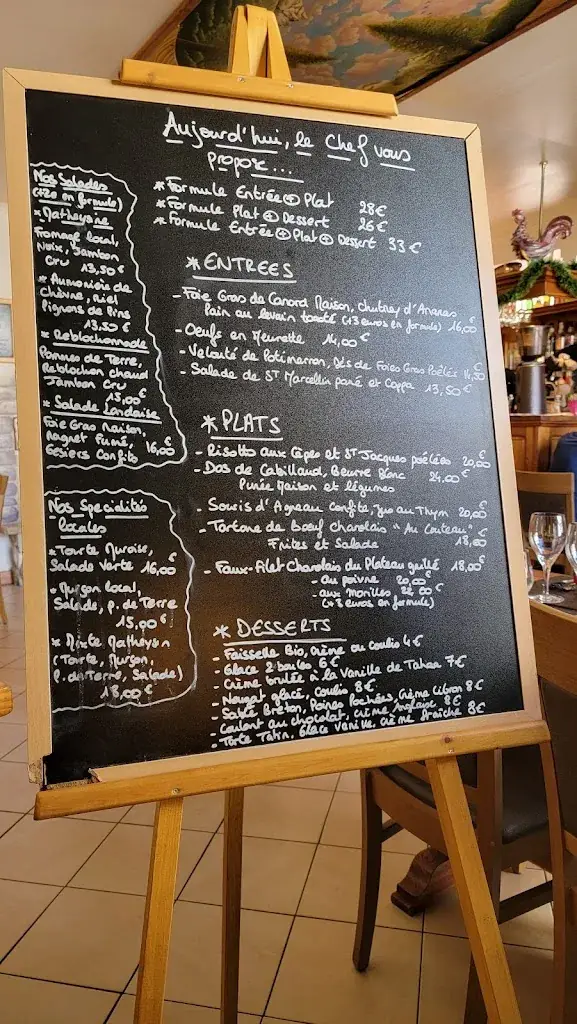 Aujourd'hui, le Chef vous
propose...
* Formule Entrée + Plat 28€
* Formule Plat + Dessert 26€
* Formule Entrée + Plat + Dessert 33€
* ENTREES
- Foie Gras de Canard Maison, chutney d'Ananas
Pain au levain toasté (+3 euros en formule) 16,00€
- Oeufs en Meurette 14,00€
- Velouté de Potimarron, Dés de Foies Gras Poêlés
- Salade de ST Marcellin pané et Coppa 13,50€
* PLATS
- Risotto aux Cèpes et ST Jacques poêlées 20,00€
- Dos de Cabillaud, Beurre Blanc 24,00€
Purée Maison et légumes
- Souris d'Agneau confite, Jus au Thym 20,00€
- Tartare de Boeuf charolais "Au Couteau" 18,00€
Frites et Salade
- Faux-Filet Charolais du Plateau grillé 18,00€
- au poivre 20,00€
- aux morilles 22,00€
(+3 euros en formule)
* DESSERTS
- Faisselle Bio, crème ou coulis 4€
- Glace 2 boules 6€
- Crème brulée à la Vanille de Tahaa 7€
- Nougat glacé, Coulis 8€
- Sablé Breton, Poires Pochées, Crème Citron 8€
- Coulant au chocolat, crème Anglaise 8€
- Tarte Tatin, Glace Vanille, crème fraîche 8€
Nos Salades
(+20 en formule)
* Matheysine
Fromage local,
Noix, Jambon
Cru 13,50€
* Aumonière de
Chèvre, miel
Pignons de Pins
13,50€
* Reblochonnade
Pommes de Terre,
Reblochon chaud
Jambon Cru
15,00€
* Salade Landaise
Foie Gras Maison,
Magret Fumé,
Gésiers Confits 16,00€
Nos Spécialités
locales
* Tourte Muroise,
Salade Verte 16,00€
* Murson local,
Salade, p. de Terre
15,00€
* Mixte Matheysin
(Tourte, Murson,
P. de Terre, Salade)
18,00€